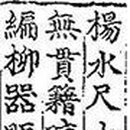 楊水尺
無貫籍
編柳器販